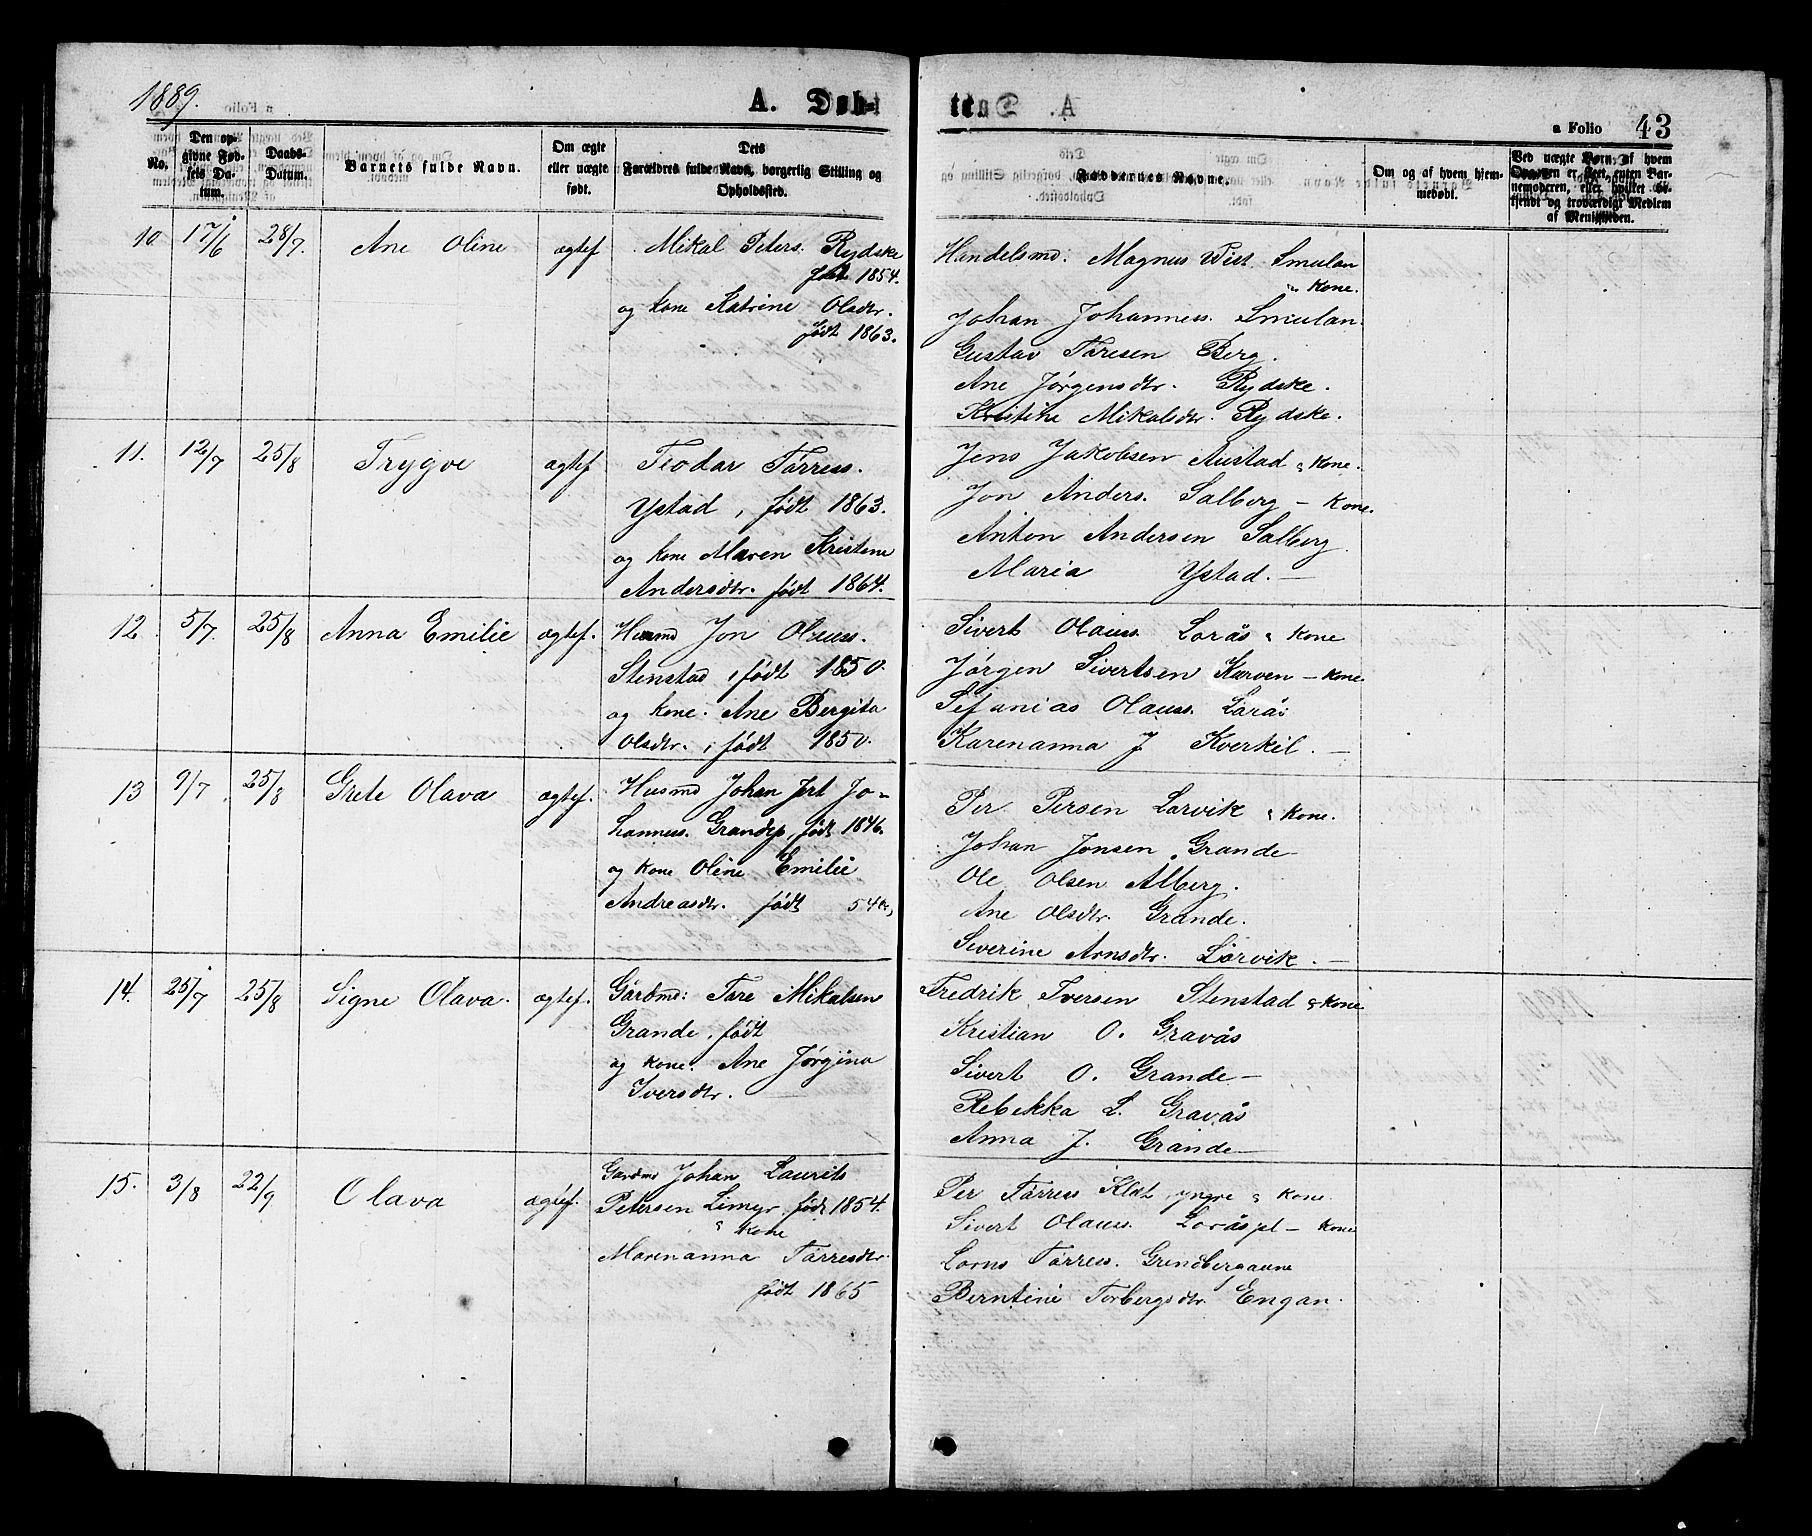 1889.
A. Døb-
te
a Folio 43
No.
Den op-
givne Fød-
sels Da-
tum.
Daabs-
Datum.
Barnets fulde Navn.
Om ægte
eller uægte
født.
Dets
Forældres fulde Navn, borgerlig Stilling og
Opholdssted.
Faddernes Navne.
Om og af hvem hjem-
medøbt.
Ved uægte Børn, af hvem
Opgaven er skeet, enten Bar-
nemoderen, eller hvilket be-
kjendt og troværdigt Medlem
af Menigheden.
10 17/6 28/7. Ane Oline ægtef
Mikal Peters. Rydske
født 1854.
og kone Katrine Olsdtr.
født 1863.
Handelsmd: Magnus Wist Smulan
" Kone.
Johan Johanness. Smulan.
Gustav Taresen Berg.
Ane Jørgensdtr. Rydske.
Kristine Mikalsdtr. Rydske.
11. 12/7 25/8 Trygve ægtef
Teodar Tørress.
Ystad, født 1863.
og kone Maren Kristene
Andersdtr. født 1864.
Jens Jakobsen Austad & Kone.
Jon Anders. Salberg — Kone.
Anton Andersen Salberg
Maria Ystad. —
12. 5/7. 25/8 Anna Emilie ægtef.
Husmd Jon Olauss.
Stenstad, født 1850.
og kone. Ane Bergita
Olsdtr. født 1850.
Sivert Olauss. Lorås & Kone
Jørgen Sivertsen Karven — Kone
Sefanias Olauss. Lorås
Karenanna J Kverkil. —
13 9/7. 25/8 Grete Olava ægtef.
Husmd Johan Jert Jo-
hanness. Grandep, født 1846.
og kone Oline Emilie
Andreasdtr. født 54
Per Persen Lorvik & Kone.
Johan Jonsen Grande
Ole Olsen Ålberg.
Ane Olsdtr. Grande.
Siverine Arnsdtr. Lorvik. —
14. 25/7 25/8 Signe Olava. ægtef.
Gårdmd: Tare Mikalsen
Grande, født
og kone. Ane Jørgina
Iversdtr.
Fredrik Iversen Stenstad & Kone
Kristian O. Gravås
Sivert O. Grande —
Rebekka L. Gravås
Anna J. Grande —
15. 3/8 22/9 Olava ægtef.
Gardmd Johan Laurits
Petersen Limyr, født 1854.
& Kone
Marenanna Tørresdtr.
født 1865
Per Tørress Kldt, yngre & Kone.
Sivert Olauss. Loråspl — Kone
Lorns Tørress. Grindbergaune
Berntine Torbergsdtr. Engan.